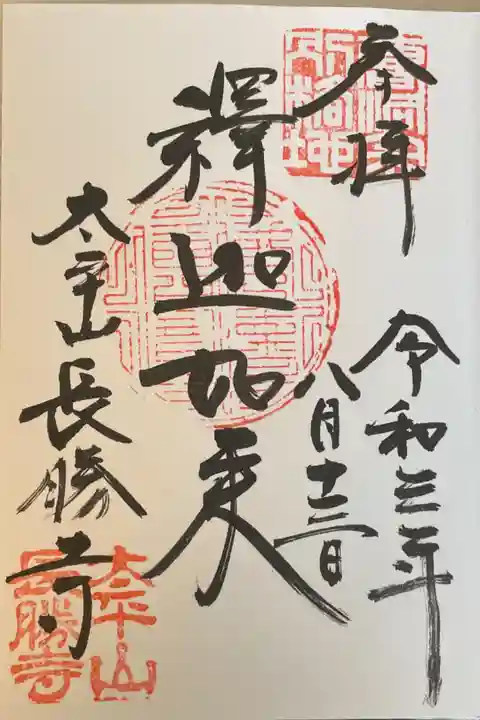 奉拝
令和三年
八月十三日
釋迦如来
太平山長勝寺
太平山
長勝寺